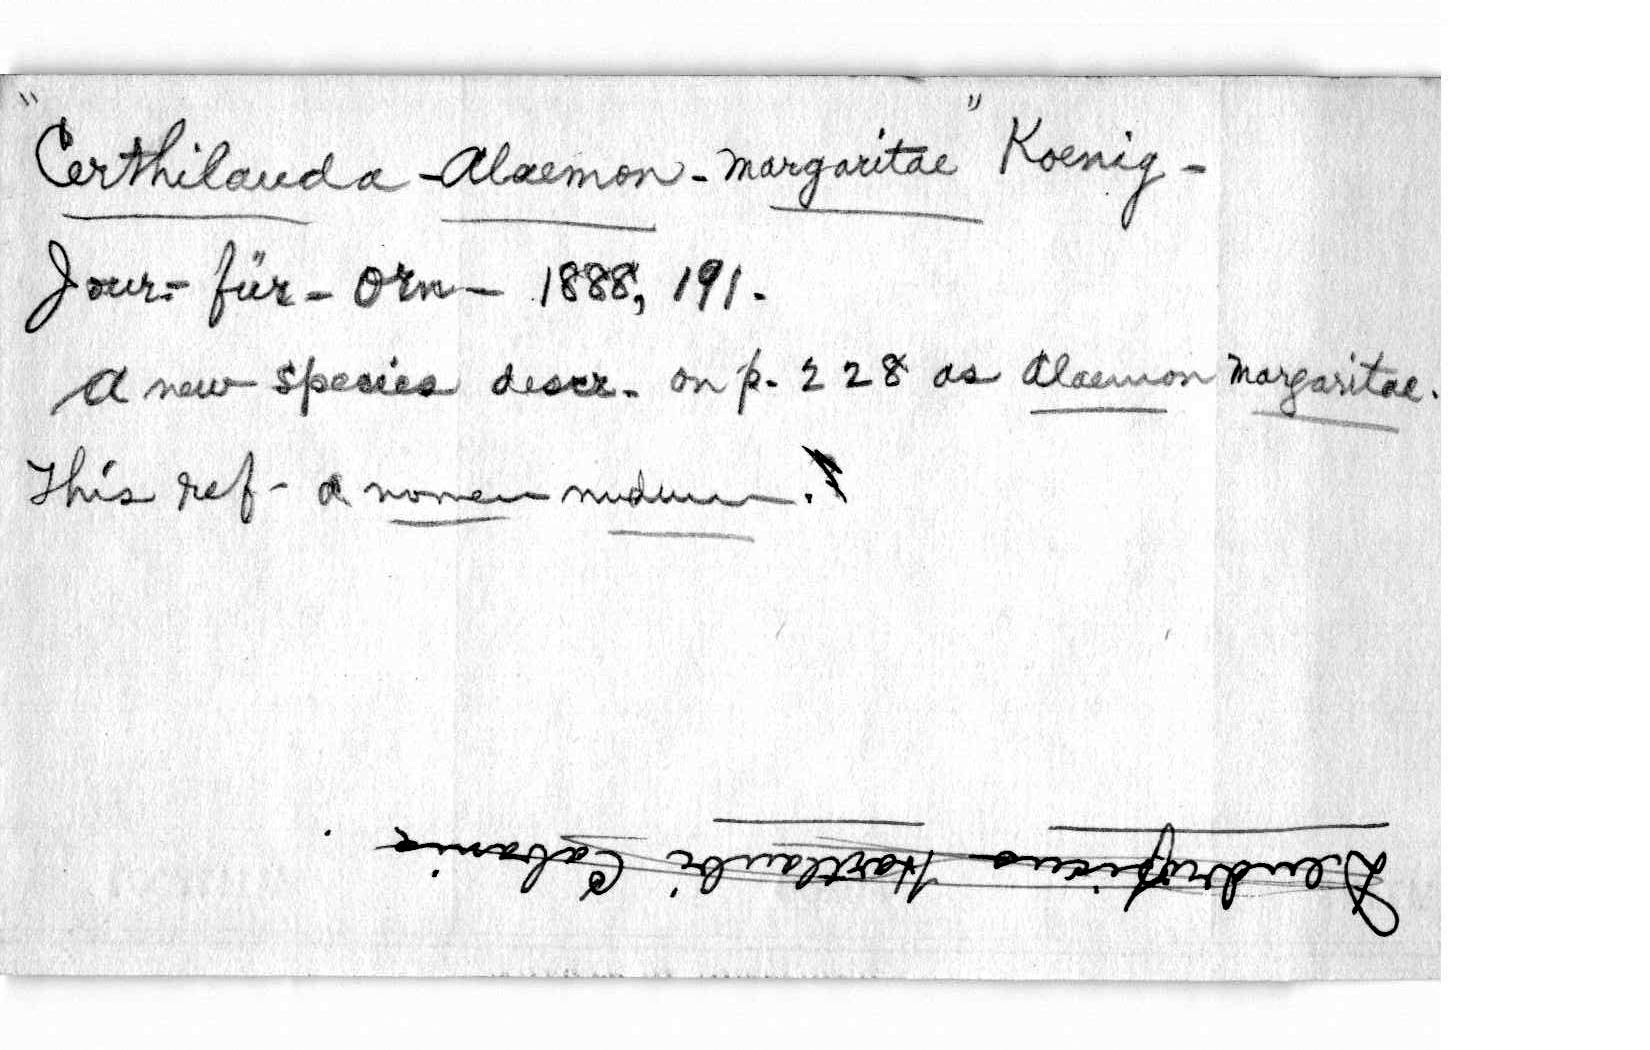 "Certhilauda - Alaemon - margaritae" Koenig -
Jour - für - Orn - 1888, 191.
A new species descr. on p. 228 as Alaemon margaritae.
This ref - a nomen nudum.
Dendropicus Hartlaubi Cabanis.